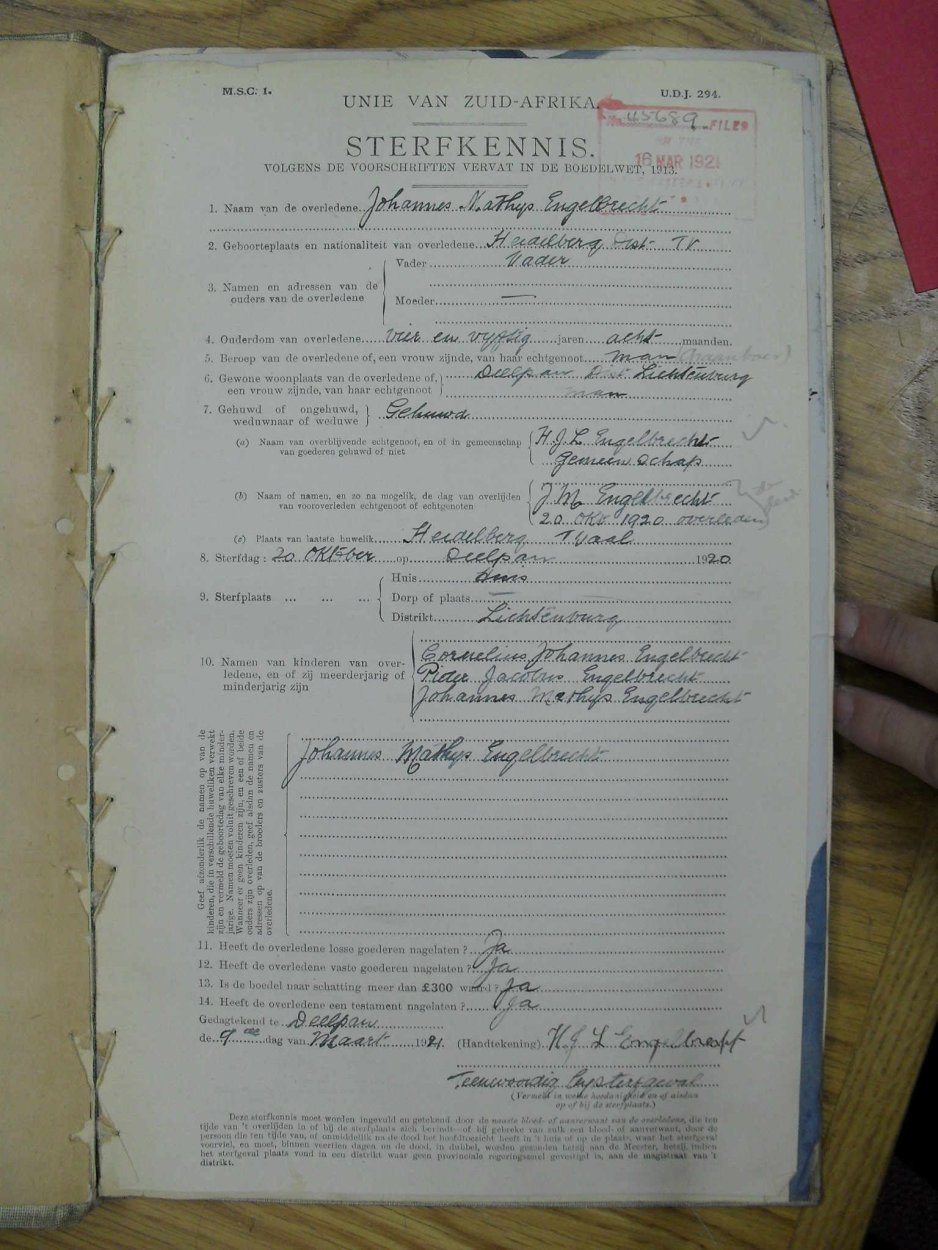 M.S.C. 1.
U.D.J. 294.
UNIE VAN ZUID-AFRIKA.
No. 45689 FILED
16 MAR 1921
STERFKENNIS.
VOLGENS DE VOORSCHRIFTEN VERVAT IN DE BOEDELWET, 1913.
1. Naam van de overledene Johannes Mathys Engelbrecht
2. Geboorteplaats en nationaliteit van overledene Heidelberg Dist TV
3. Namen en adressen van de ouders van de overledene
Vader Vader
Moeder —
4. Ouderdom van overledene vier en vyftig jaren acht maanden.
5. Beroep van de overledene of, een vrouw zijnde, van haar echtgenoot man (Graanboer)
6. Gewone woonplaats van de overledene of, Deelpan Dist Lichtenburg
een vrouw zijnde, van haar echtgenoot man
7. Gehuwd of ongehuwd, weduwnaar of weduwe Gehuwd
(a) Naam van overblijvende echtgenoot, en of in gemeenschap H.J.L Engelbrecht
van goederen gehuwd of niet gemeenschap
(b) Naam of namen, en zo na mogelik, de dag van overlijden J M Engelbrecht
van vooroverleden echtgenoot of echtgenoten 20 Okt 1920 overleden
(c) Plaats van laatste huwelik Heidelberg Tvaal
8. Sterfdag: 20 Oktober op Deelpan 1920
9. Sterfplaats ... ... ...
Huis Huis
Dorp of plaats —
Distrikt Lichtenburg
10. Namen van kinderen van overledene, en of zij meerderjarig of minderjarig zijn
Cornelius Johannes Engelbrecht
Pieter Jacobus Engelbrecht
Johannes Mathys Engelbrecht
Geef afzonderlik de namen op van de
kinderen, die in verschillende huweliken verwekt
zijn en vermeld de geboortedag van elke minder-
jarige. Namen moeten voluit geschreven worden.
Wanneer er geen kinderen zijn, en een of beide
ouders zijn overleden, geef alsdan de namen en
adressen op van de broeders en zusters van de
overledene.
Johannes Mathys Engelbrecht
11. Heeft de overledene losse goederen nagelaten? Ja
12. Heeft de overledene vaste goederen nagelaten? Ja
13. Is de boedel naar schatting meer dan £300 waard? Ja
14. Heeft de overledene een testament nagelaten? Ja
Gedagtekend te Deelpan
de 9de dag van Maart 1921 (Handtekening) H J L Engelbrecht
Teenwoordig by sterfgeval
(Vermeld in welke hoedanigheid en of alsdan
op of bij de sterfplaats.)
Deze sterfkennis moet worden ingevuld en getekend door de naaste bloed- of aanverwant van de overledene, die ten
tijde van 't overlijden in of bij de sterfplaats zich bevindt—of bij gebreke van zulk een bloed- of aanverwant, door de
persoon die ten tijde van, of onmiddellik na de dood het hoofdtoezicht heeft in 't huis of op de plaats, waar het sterfgeval
voorviel, en moet, binnen veertien dagen na de dood, in dubbel, worden gezonden hetzij aan de Meester, hetzij, indien
het sterfgeval plaats vond in een distrikt waar geen provinciale regeringszetel gevestigd is, aan de magistraat van 't
distrikt.